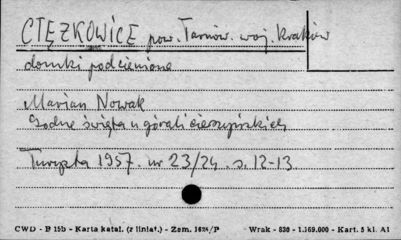 CIĘŻKOWICE pow. Tarnów. woj. Kraków
domki podcieniowe
Marian Nowak
Godne święta u górali cieszyńskich
Turysta 1957. nr 23/24 s. 12-13
CWD - B 15b - Karta katal. (z liniat.) - Zam. 1628/P Wrak - 830 - 1.569.000 - Kart. 5 kl. A1